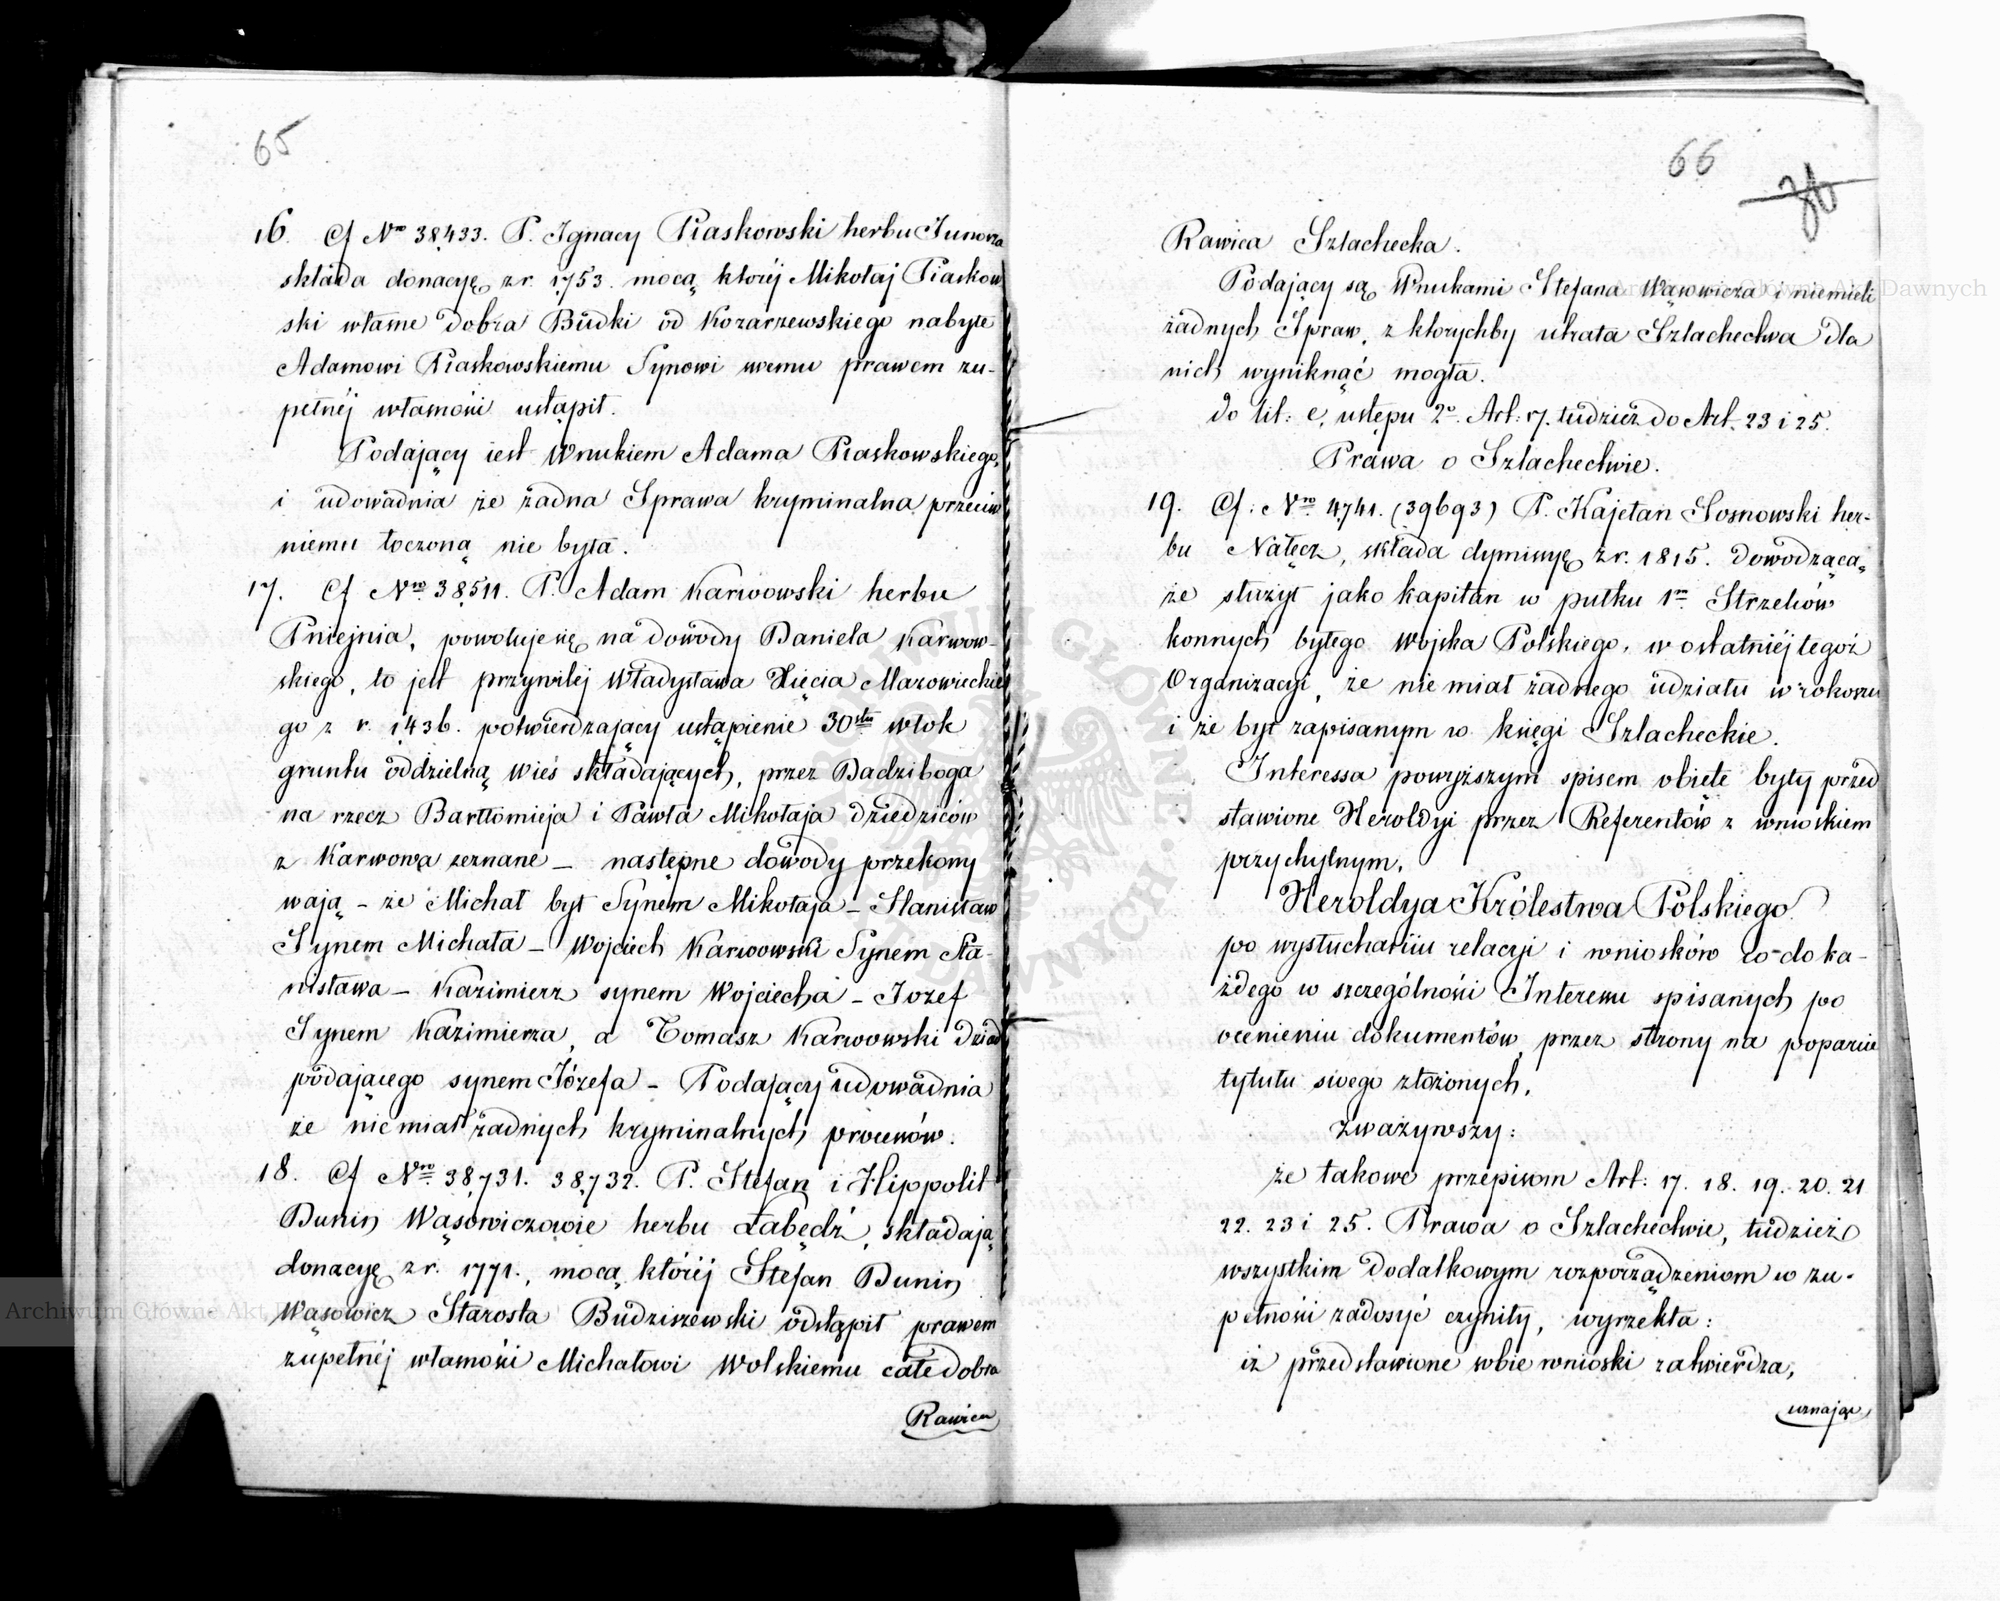 65
16. Cf Nro 38,433. P. Ignacy Piaskowski herbu Junosza
składa donacyę z r. 1753. mocą którėj Mikołaj Piaskow
ski własne dobra Budki od Kozarzewskiego nabyte
Adamowi Piaskowskiemu Synowi swemu prawem zu-
pełnėj własności ustąpił.
Podający iest Wnukiem Adama Piaskowskiego,
i udowadnia że żadna Sprawa kryminalna przeciw
niemu toczoną nie była.
17. Cf Nro 38,511. P. Adam Karwowski herbu
Pniejnia, powołuje się na dowody Daniela Karwow-
skiego, to jest przywilėj Władysława Xięcia Mazowieckie
go z r. 1436. potwierdzający ustąpienie 30stu włok
gruntu oddzielną wieś składających, przez Dadziboga
na rzecz Bartłomieja i Pawła Mikołaja dziedziców
z Karwowa zeznane – następne dowody przekony
wają – że Michał był Synem Mikołaja – Stanisław
Synem Michała – Wojciech Karwowski Synem Sta-
nisława – Kazimierz synem Wojciecha – Jozef
Synem Kazimierza, a Tomasz Karwowski dziad
podającego synem Józefa – Podający udowadnia
że nie miał żadnych kryminalnych procesów.
18. Cf Nro 38,731. 38,732. P. Stefan i Hippolit
Dunin Wąsowiczowie herbu Łabędź, składają
donacyę z r. 1771., mocą którėj Stefan Dunin
Wąsowicz Starosta Budziszewski odstąpił prawem
zupełnėj własności Michałowi Wolskiemu całe dobra
Rawica
66
Rawica Szlachecka.
Podający są Wnukami Stefana Wąsowicza i niemieli
żadnych Spraw, z którychby utrata Szlachectwa dla
nich wyniknąć mogła.
do lit: e, ustępu 2o Art: 17. tudzież do Art. 23 i 25.
Prawa o Szlachectwie.
19. Cf: Nro 4,741. (39693) P. Kajetan Sosnowski her-
bu Nałęcz, składa dymissyę z r. 1815. dowodzącą,
że służył jako kapitan w pułku 1m Strzelców
konnych byłego wojska Polskiego, w ostatniėj tegoż
Organizacyi, że nie miał żadnego udziału w rokoszu
i że był zapisanym w księgi Szlacheckie.
Interessa powyższym spisem objęte były przed
stawione Heroldyi przez Referentów z wnioskiem
przychylnym.
Heroldya Królestwa Polskiego
po wysłuchaniu relacyi i wniosków co do ka-
żdego w szczególności Interessu spisanych po
ocenieniu dokumentów, przez strony na poparcie
tytułu swego złożonych.
zważywszy:
że takowe przepisom Art: 17. 18. 19. 20. 21
22. 23 i 25. Prawa o Szlachectwie, tudzież
wszystkim dodatkowym rozporządzeniom w zu-
pełności zadosyć czyniły, wyrzekła:
iż przedstawione sobie wnioski zatwierdza,
uznając
Archiwum Główne Akt Dawnych
Archiwum Główne Akt
ARCHIWUM GŁÓWNE AKT DAWNYCH